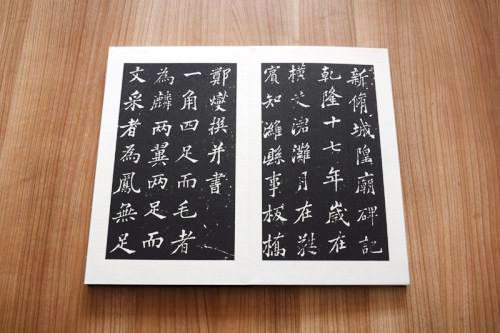 新脩城隍廟碑記
乾隆十七年歲在
橫艾涒灘月在蕤
賓知濰縣事板橋
鄭燮撰并書
一角四足而毛者
為麟兩翼兩足而
文采者為鳳無足